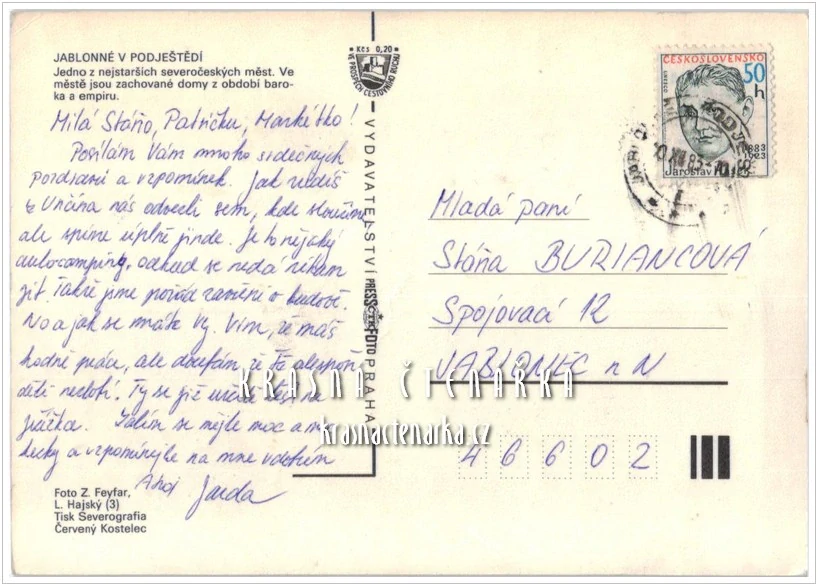 JABLONNÉ V PODJEŠTĚDÍ
Jedno z nejstarších severočeských měst. Ve
městě jsou zachované domy z období baro-
ka a empiru.
Milá Stáňo, Patričku, Markétko!
Posílám Vám mnoho srdečných
pozdravů a vzpomínek. Jak vidíš
z Unčína nás odvezli sem, kde sloužíme
ale spíme úplně jinde. Je to nějaký
autocamping, odkud se nedá nikam
jít, takže jsme pořád zavření v budově.
No a jak se máte Vy. Vím, že máš
hodně práce, ale doufám, že Tě alespoň
děti nezlobí. Ty se již určitě těší na
Ježíška. Zatím se mějte moc a moc
hezky a vzpomínejte na mne v dobrém
Ahoj Jarda
Foto Z. Feyfar,
L. Hajský (3)
Tisk Severografia
Červený Kostelec
Kčs 0,20
VE PROSPĚCH CESTOVNÍHO RUCHU
VYDAVATELSTVÍ PRESSFOTO PRAHA
ČTK
ČESKOSLOVENSKO
50 h
1883
1923
Jaroslav
Mladá paní
Stáňa BURIANCOVÁ
Spojovací 12
JABLONEC n N
46602
KRÁSNÁ ČTENÁŘKA
krasnactenarka.cz